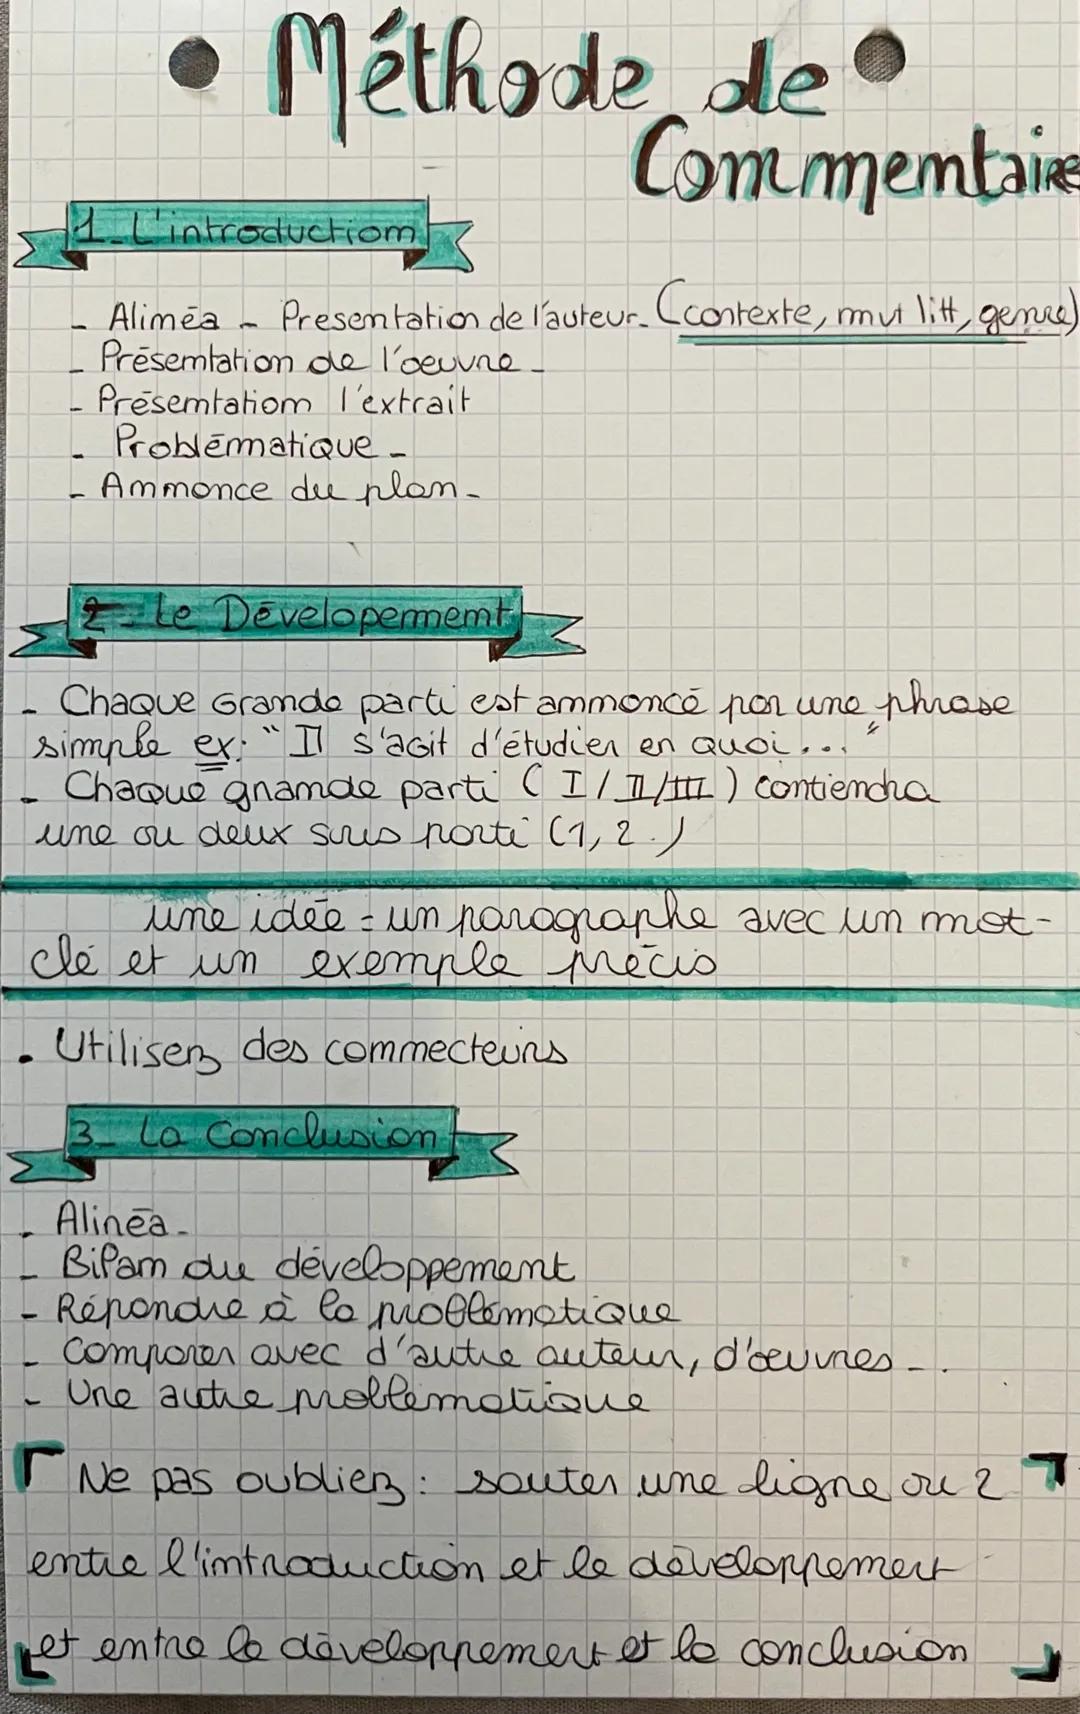 • Méthode de •
Commentaire
1_L'introduction
- Alinéa - Presentation de l'auteur. (contexte, mut litt, genre)
- Présentation de l'oeuvre -
- Présentation l'extrait
- Problématique -
- Annonce du plan -
2 - Le Dévelopement
- Chaque Grande parti est annoncé par une phrase
simple ex: "Il s'agit d'étudier en quoi..."
- Chaque grande parti (I/II/III) contiendra
une ou deux sous parti (1, 2.)
une idée = un paragraphe avec un mot-
clé et un exemple précis
• Utilisez des connecteurs
3_ La Conclusion
- Alinéa -
- Bilan du développement
- Répondre à la problématique
- Comparer avec d'autre auteur, d'œuvres - .
- Une autre problématique
Ne pas oubliez : sauter une ligne ou 2
entre l'introduction et le développement
et entre le développement et la conclusion